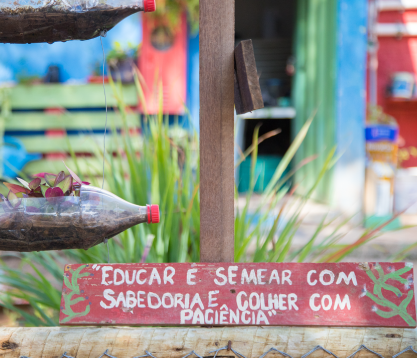 "EDUCAR É SEMEAR COM
SABEDORIA E COLHER COM
PACIÊNCIA"